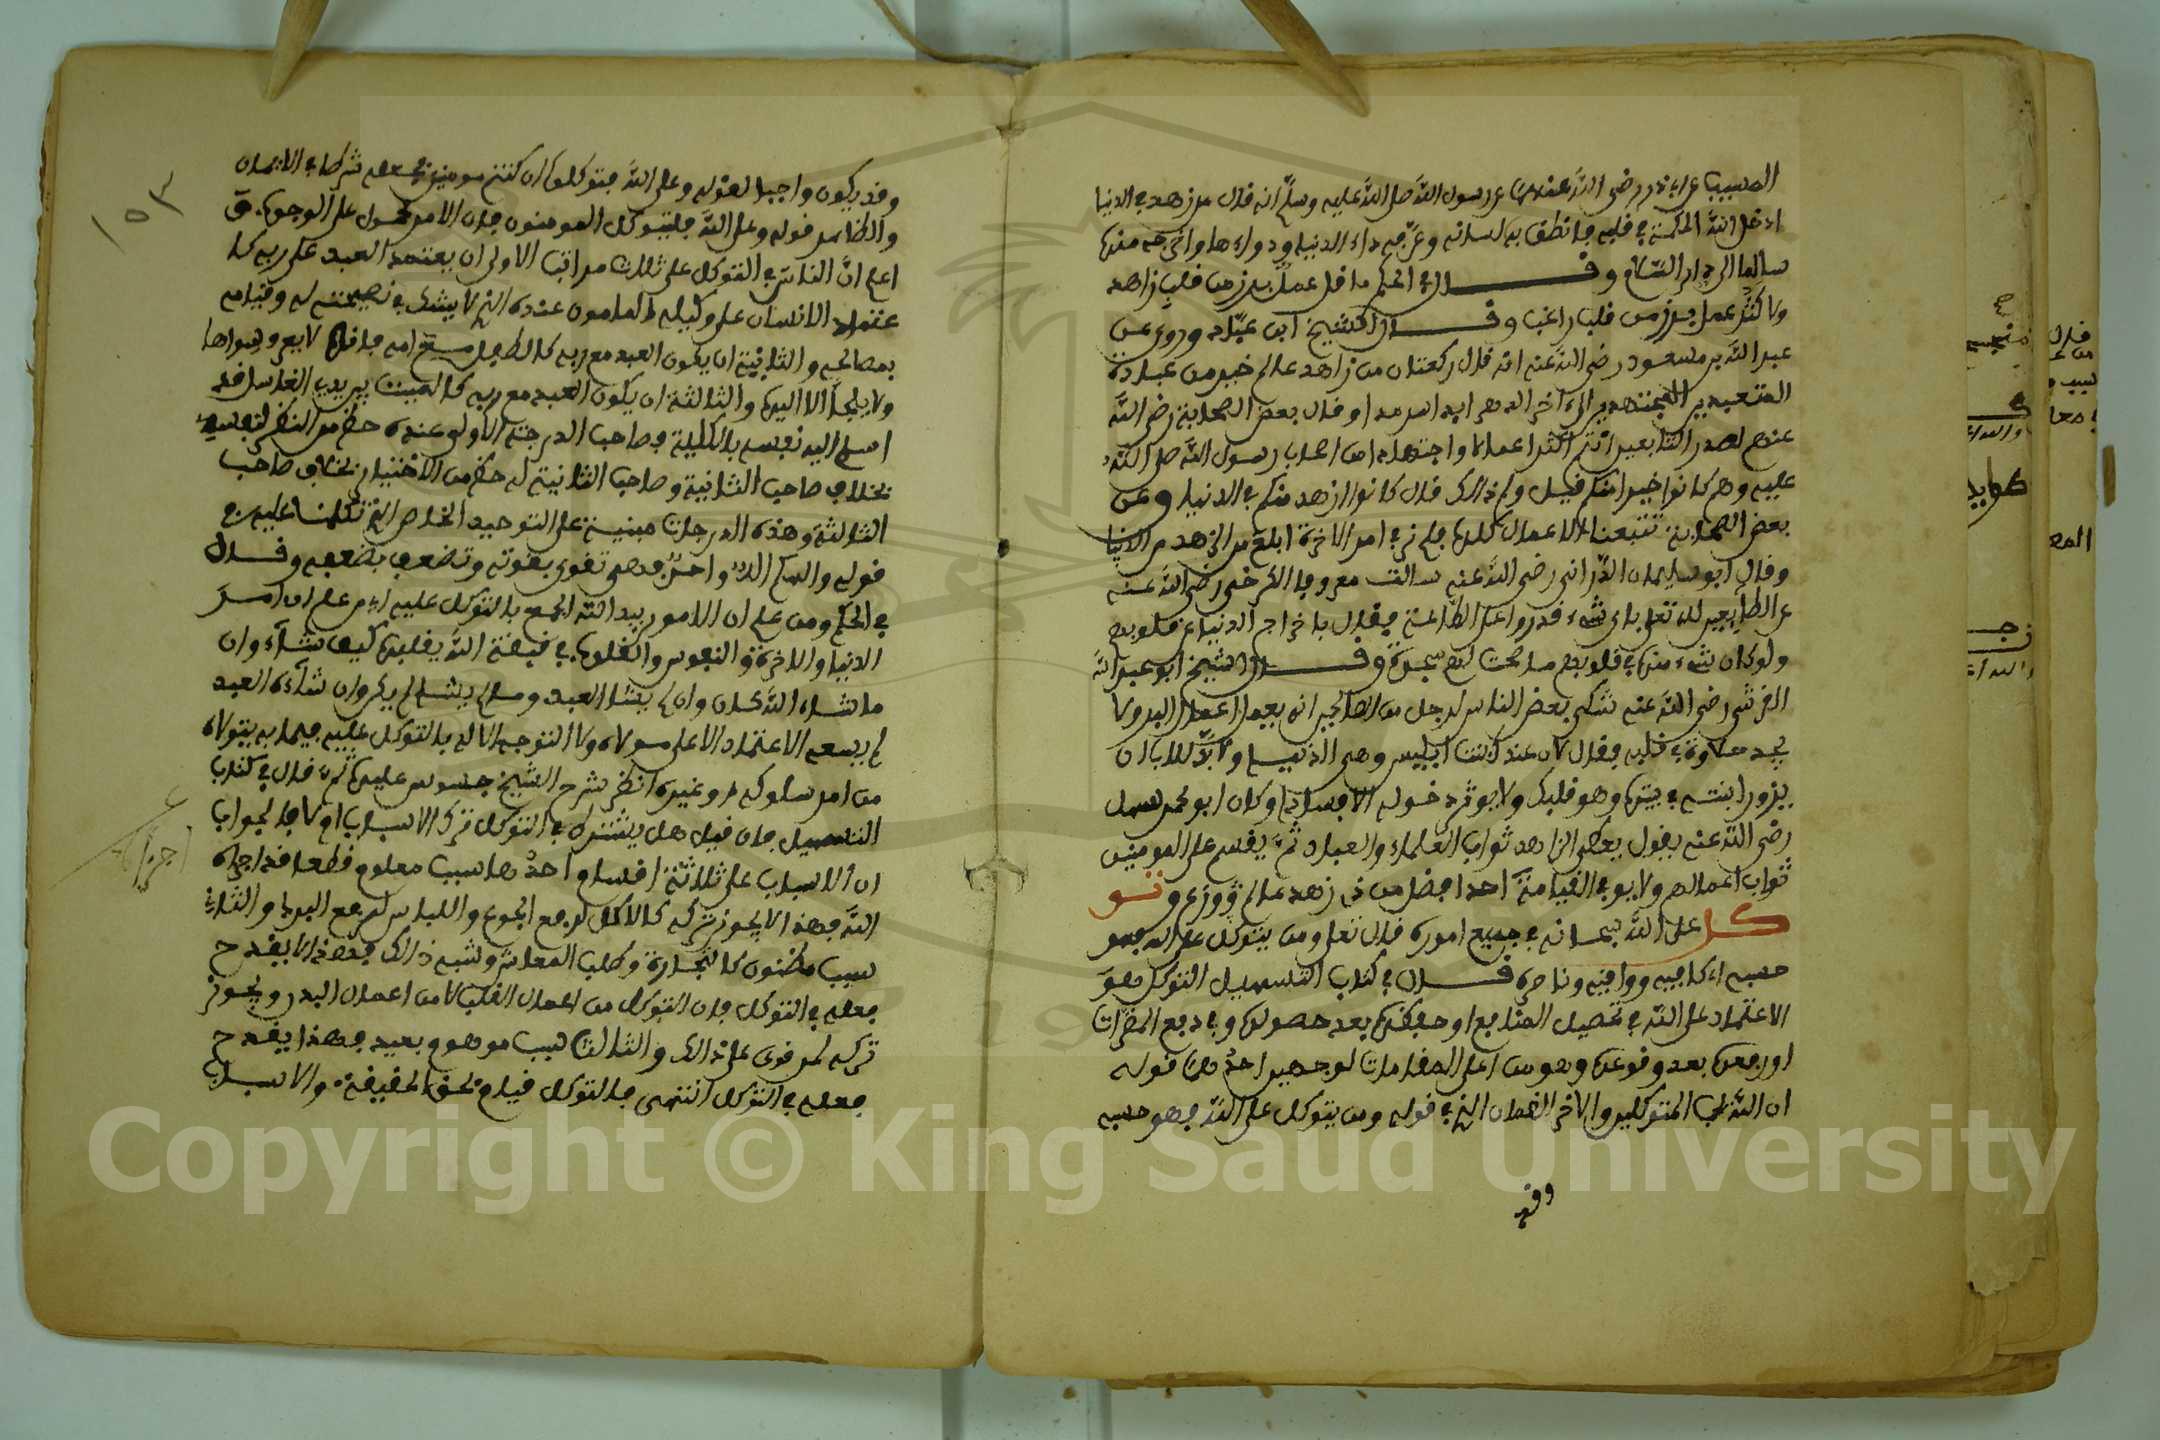 المسيب عن ابي ذر رضي الله عنهما عن رسول الله صلى الله عليه وسلم انه قال من زهد في الدنيا
ادخل الله الحكمة في قلبه فانطق بها لسانه وعرفه داء الدنيا ودواءها واخرجه منها
سالما الى دار السلام وقال في الحكم ما قل عمل برز من قلب زاهد
ولا كثر عمل برز من قلب راغب وقال الشيخ ابن عباد وروي عن
عبد الله بن مسعود رضي الله عنه انه قال ركعتان من زاهد عالم خير من عبادة
المتعبدين المجتهدين الى آخر الدهر ابدا سرمدا وقال بعض الصحابة رضي الله
عنهم لصدر التابعين انتم اكثر اعمالا واجتهادا من اصحاب رسول الله صلى الله
عليه وهم كانوا خيرا منكم قيل ولم ذالك قال كانوا ازهد منكم في الدنيا وعن
بعض الصحابة تتبعنا الاعمال كلها فلم نر في امر الاخرة ابلغ من الزهد في الدنيا
وقال ابو سليمان الداراني رضي الله عنه سالت معروفا الكرخي رضي الله عنه
عن الطايعين لله تعالى باي شيء قدروا على الطاعة فقال باخراج الدنيا من قلوبهم
ولو كان شيء منها في قلوبهم ما صحت لهم سجدة وقال الشيخ ابو عبد الله
القرشي رضي الله عنه شكى بعض الناس لرجل من الصالحين انه يعمل اعمال البر ولا
يجد حلاوة في قلبه فقال لان عندك بنت ابليس وهي الدنيا ولا بد للاب ان
يزور ابنته في بيتها وهو قلبك ولا يوثر دخوله الا فسادا وكان ابو محمد سهل
رضي الله عنه يقول يعطى الزاهد ثواب العلماء والعباد ثم يقسم على المومنين
ثواب اعماله ولا يرى في القيامة احد افضل من ذي زهد عالم وورع وتو
كل على الله سبحانه في جميع اموره قال تعالى ومن يتوكل على الله فهو
حسبه اي كافيه وواقيه وناصره قال في كتاب التسهيل التوكل هو
الاعتماد على الله في تحصيل المنافع او حفظها بعد حصولها وفي دفع المضرات
او رفعها بعد وقوعها وهو من اعلى المقامات لوجهين احدهما قوله
ان الله يحب المتوكلين والاخر الضمان الذي في قوله ومن يتوكل على الله فهو حسبه
وقد
١٥٣
وقد يكون واجبا لقوله وعلى الله فتوكلوا ان كنتم مومنين فجعله شرطا في الايمان
والظاهر قوله وعلى الله فليتوكل المومنون فان الامر محمول على الوجوب
اعلم ان الناس في التوكل على ثلاث مراتب الاولى ان يعتمد العبد على ربه كا
عتماد الانسان على وكيله المامون عنده الذي لا يشك في نصيحته له وقيامه
بمصالحه والثانية ان يكون العبد مع ربه كالطفل مع امه فانه لا يعرف سواها
ولا يلجا الا اليها والثالثة ان يكون العبد مع ربه كالميت بين يدي الغاسل قد
اسلم اليه نفسه بالكلية فصاحب الدرجة الاولى عنده حظ من النظر لنفسه
بخلاف صاحب الثانية وصاحب الثانية له حظ من الاختيار بخلاف صاحب
الثالثة وهذه الدرجات مبنية على التوحيد الخاص الذي تكلمنا عليه في
قوله والهكم اله واحد فهي تقوى بقوته وتضعف بضعفه وقال
في الحكم ومن علم ان الامور بيد الله الجمع بالتوكل عليه اي من علم ان امر
الدنيا والاخرة والنفوس والقلوب في قبضة الله يقلبها كيف شاء وان
ما شاء الله كان وان لم يشا العبد وما لم يشا لم يكن وان شاءه العبد
لم يسعه الا الاعتماد على مولاه ولا التوجه الا له بالتوكل عليه فيما به يتولاه
من امر سلوكه او غيره انظر شرح الشيخ جسوس عليها ثم قال في كتاب
التسهيل فان قيل هل يشترط في التوكل ترك الاسباب ام لا فالجواب
ان الاسباب على ثلاثة اقسام احدها سبب معلوم قطعا قد اجراه
الله فهذا لا يجوز تركه كالاكل لرفع الجوع واللباس لرفع البرد والثاني
سبب مظنون كالتجارة وطلب المعاش وشبه ذالك فهذا لا يقدح
فعله في التوكل فان التوكل من اعمال القلب لا من اعمال البدن ويجوز
تركه لمن قوي على ذالك والثالث سبب موهوم بعيد فهذا يقدح
فعله في التوكل انتهى فالتوكل قيام بحق الحقيقة والاسباب